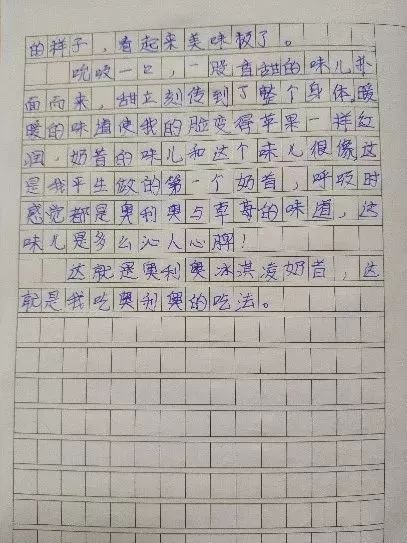 的样子，看起来美味极了。
吮吸一口，一股香甜的味儿扑
面而来，甜立刻传到了整个身体，暖
暖的味道使我的脸变得苹果一样红
润，奶昔的味儿和这个味儿很像，这
是我平生做的第一个奶昔，呼吸时
感觉都是奥利奥与草莓的味道，这
味儿是多么沁人心脾！
这就是奥利奥冰淇凌奶昔，这
就是我吃奥利奥的吃法。